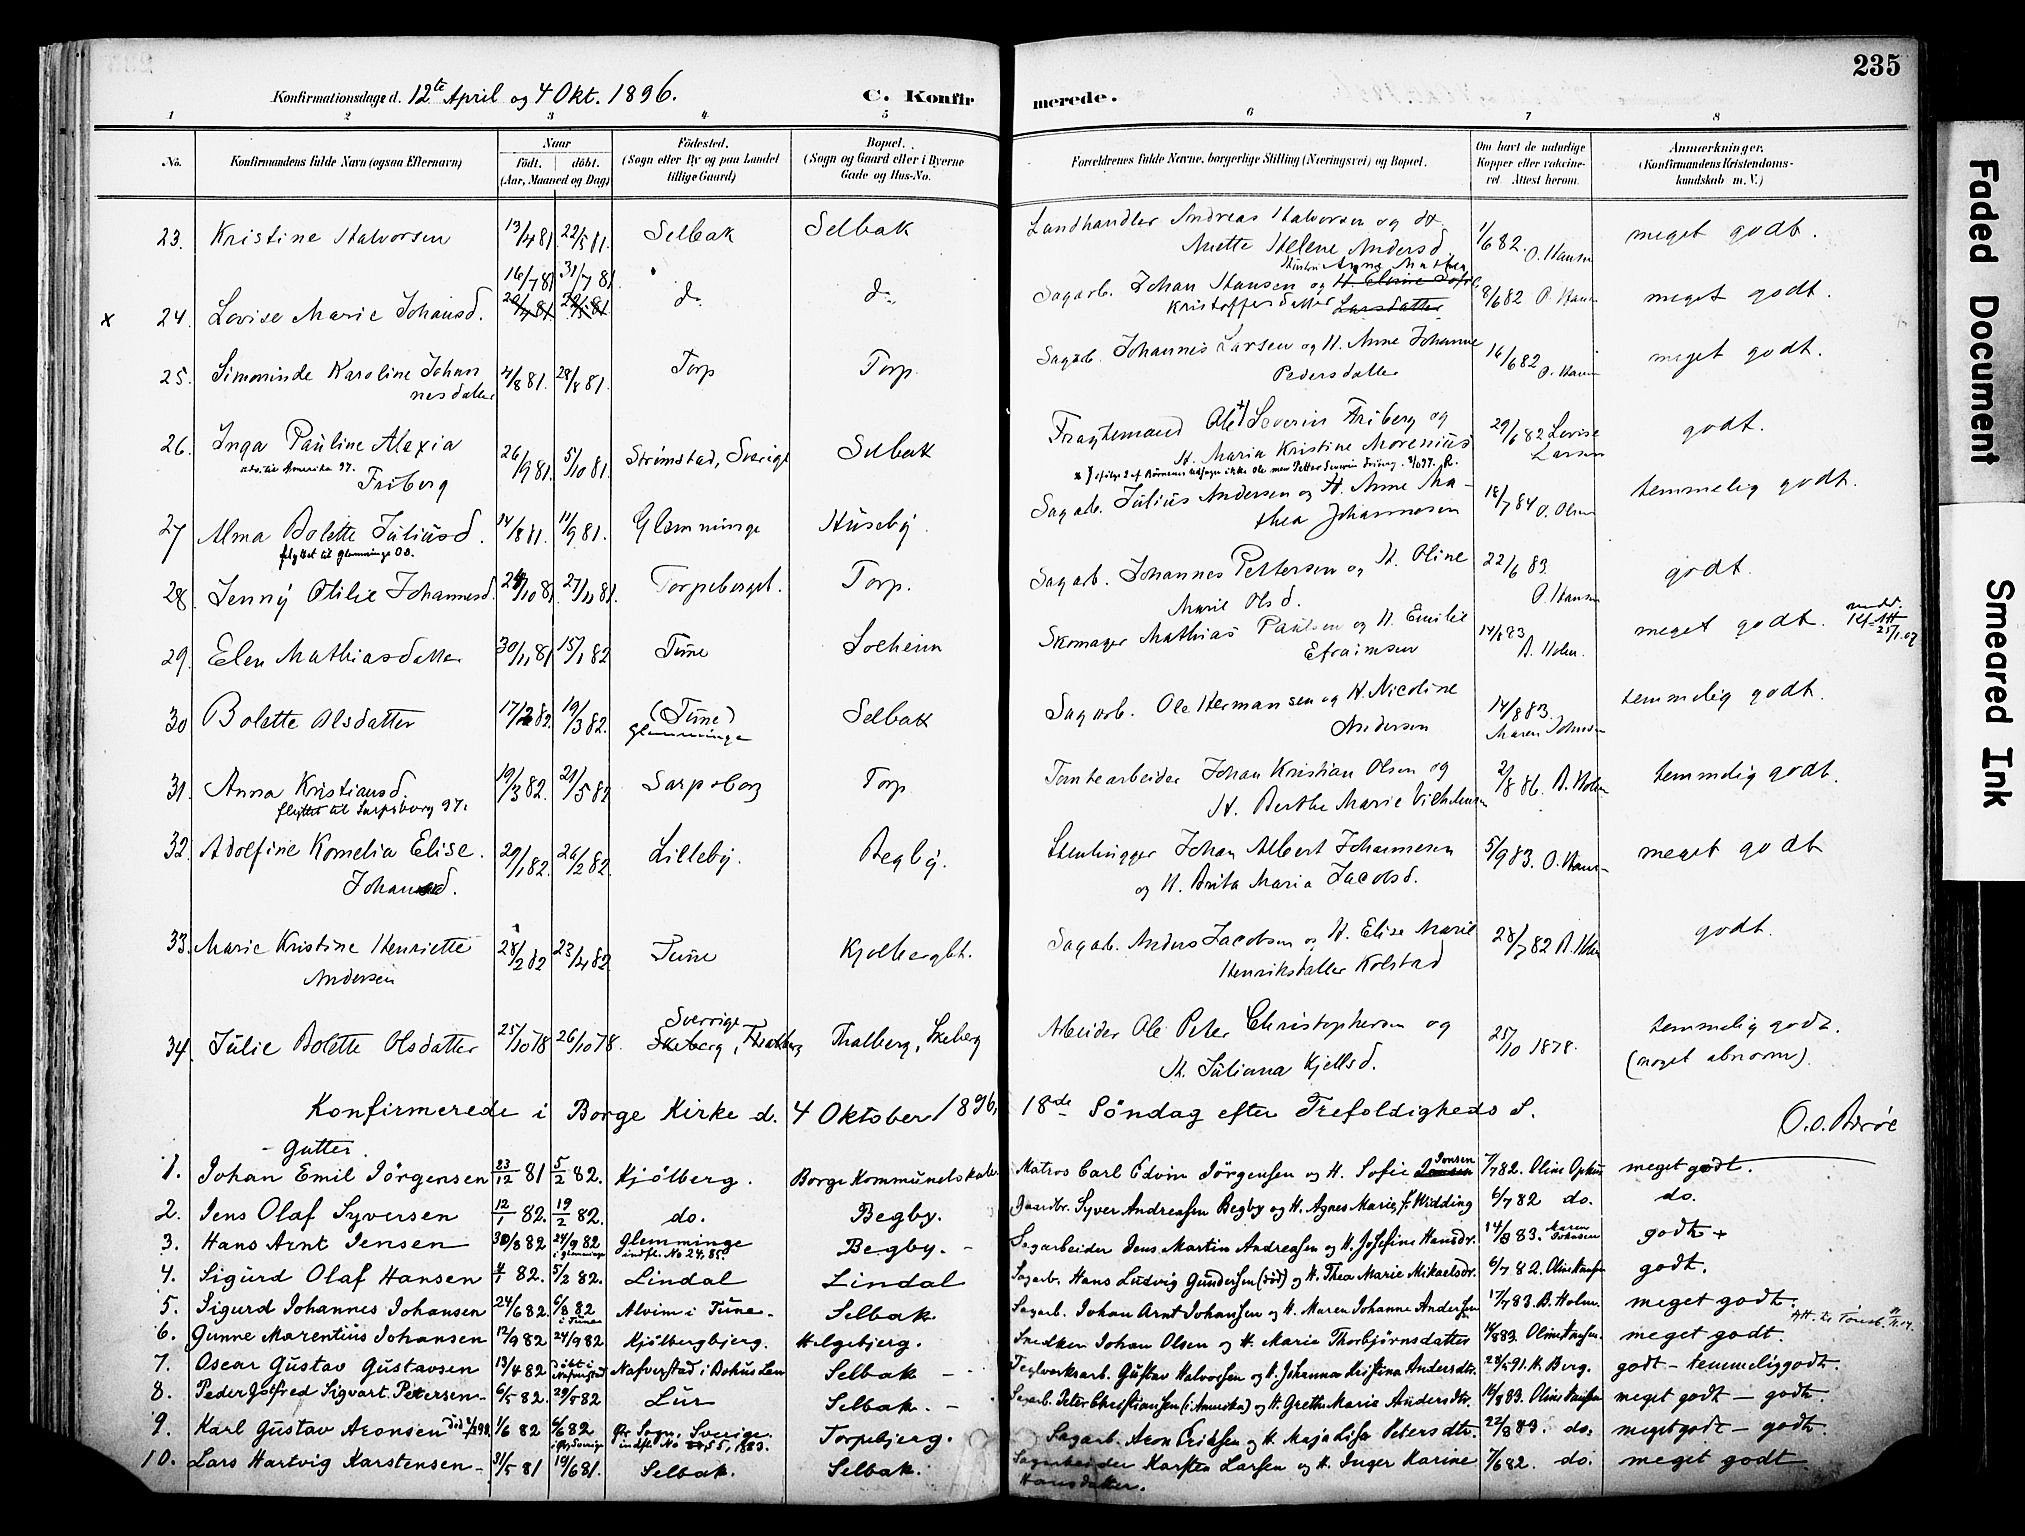 235
Konfirmationsdage d. 12te April og 4 Okt. 1896. C. Konfirmerede.
1 2 3 4 5 6 7 8
No. Konfirmandens fulde Navn (ogsaa Efternavn) Naar født. døbt. (Aar, Maaned og Dag) Fødested. (Sogn eller By og paa Landet tillige Gaard) Bopæl. (Sogn og Gaard eller i Byerne Gade og Hus-No. Forældrenes fulde Navne, borgerlige Stilling (Næringsvei) og Bopæl. Om havt de naturlige Kopper eller vaccineret. Attest herom. Anmærkninger. (Konfirmandens Kristendomskundskab m. V.)
23. Kristine Halvorsen 13/4 81 22/5 81. Selbak Selbak Landhandler Andreas Halvorsen og H. 1/6 82. O. Hansen meget godt.
Anette Helene Andersd.
16/7 81 31/7 81 Hustru Anna Mathea
x 24. Lovise Marie Johansd. do do Sagarb. Johan Hansen og H. Kristoffersdatter Larsdatter 8/6 82 meget godt.
25. Simminde Karoline Johannesdatter 4/8 81. 28/8 81. Torp Torp. Sagarb. Johannes Larsen og H. Anne Johanne Pedersdatter 16/6 82 O. Hansen meget godt.
26. Inga Pauline Alexia Friberg 26/9 81. 5/10 81. Strømstad, Sverige Selbak Fragtemand Ole Severin Friberg og H. Maria Kristine Morenius 29/6 82 Lovise Larsen godt.
27 Alma Bolette Juliusd. 14/8 81. 11/9 81. Glemminge Huseby. Sagarb. Julius Andersen og H. Anne Mathea Johannesen 18/7 84 O. Olsen temmelig godt.
flyttet til Glemminge 00.
28. Jenny Otilie Johannesd. 27/11 81. Torpeberget. Torp. Sagarb. Johannes Pettersen og H. Oline Marie Olsd. 22/6 83. O. Hansen godt.
29. Elen Mathiasdatter 30/11 81 15/1 82 Tune Solheim Skomager Mathias Paulsen og H. Emilie Efraimsen A. Holm. meget godt.
30 Bolette Olsdatter 19/3 82. (Tune) Glemminge Selbak Sagarb. Ole Hermansen og H. Nicoline Andersen 14/8 83. Maren Johnsen temmelig godt.
31. Anna Kristiansd. 19/3 82. 21/5 82 Sarpsborg Torp Tomtearbeider Johan Kristian Olsen og H. Berthe Marie Vilhelmsen 2/8 86. A. Holm temmelig godt.
flyttet til Sarpsborg 97.
32. Adolfine Kornelia Elise Johansd. 29/1 82. 26/2 82. Lilleby. Begby. Stenhugger Johan Albert Johannesen og H. Brita Maria Jacobsd. 5/9 83. O. Hansen meget godt
33. Marie Kristine Henriette Andersen 28/2 82 23/4 82 Tune Kjølbergbt. Sagarb. Anders Jacobsen og H. Elise Marie Henriksdatter Kolstad 28/7 82 A. Holm godt.
34. Julie Bolette Olsdatter 25/10 78 26/10 78. Sverrige Skeberg, Thalberg Thalberg, Skeberg Arbeider Ole Peter Christophersen og H. Juliana Kjellsd. 25/10 1878. temmelig godt. (noget abnorm).
Konfirmerede i Borge Kirke d. 4 Oktober 1896, 18de Söndag efter Trefoldigheds S.
Gutter.
1. Johan Emil Jörgensen 23/12 81 5/2 82. Kjölberg. Borge Kommunelokale Matros Carl Edvin Jörgensen og H. Sofie Jonsen 7/7 82. meget godt.
2. Jens Olaf Syversen 12/1 82. 19/2 82. do. Begby. Gaardbr. Syver Andreasen Begby og H. Agnes Marie f. Widding 6/7 82 do. do.
3. Hans Arnt Jensen 30/8 82 24/9 82 i Glemminge Glemminge indfl. No 24, 85. Begby. Sagarbeider Jens Martin Andreasen og H. Josefine Hansdr. 14/8 83. Maren Johnsen godt +
4. Sigurd Olaf Hansen 4/1 82. 5/2 82. Lindal Lindal Sagarb. Hans Ludvig Gundersen (död) og H. Thea Marie Mikaelsdr. 6/7 82. godt.
5. Sigurd Johannes Johansen 24/6 82. 6/8 82 i Tune Alvim i Tune. Selbak. Sagarb. Johan Arnt Johansen og H. Maren Johanne Andersen 17/7 83. B. Holm. meget godt.
6. Gunne Marentius Johansen 12/9 82 24/9 82 Kjölbergbjerg. Helgebjerg. Snedker Johan Olsen og H. Maria Thorbjørnsdatter meget godt.
7. Oscar Gustav Gustavsen 13/4 82 döbt i Nafverstad Nafverstad i Bohus Len Selbak Teglverksarb. Gustav Halvorsen og H. Johanna Kristina Andersdtr. K. Berg. godt - temmelig godt.
8. Peder Gotfred Sigvart Petersen 6/5 82. 29/5 82 Lur Selbak. Sagarb. Peter Christiansen (i Amerika) og H. Grethe Marie Andersdtr. meget godt - godt.
9. Karl Gustav Aronsen 1/6 82 Sogn, Sverige. Torpebjerg. Sagarb. Aron Eriksen og H. Maja Lisa Petersdtr. 22/8 83. do. meget godt - godt.
10. Lars Hartvig Karstensen 31/5 81 19/6 81. Selbak. Selbak. Sagarbeider Karsten Larsen og H. Inger Karine Hansdatter. 7/6 82. do. meget godt
Faded Document
Smeared Ink